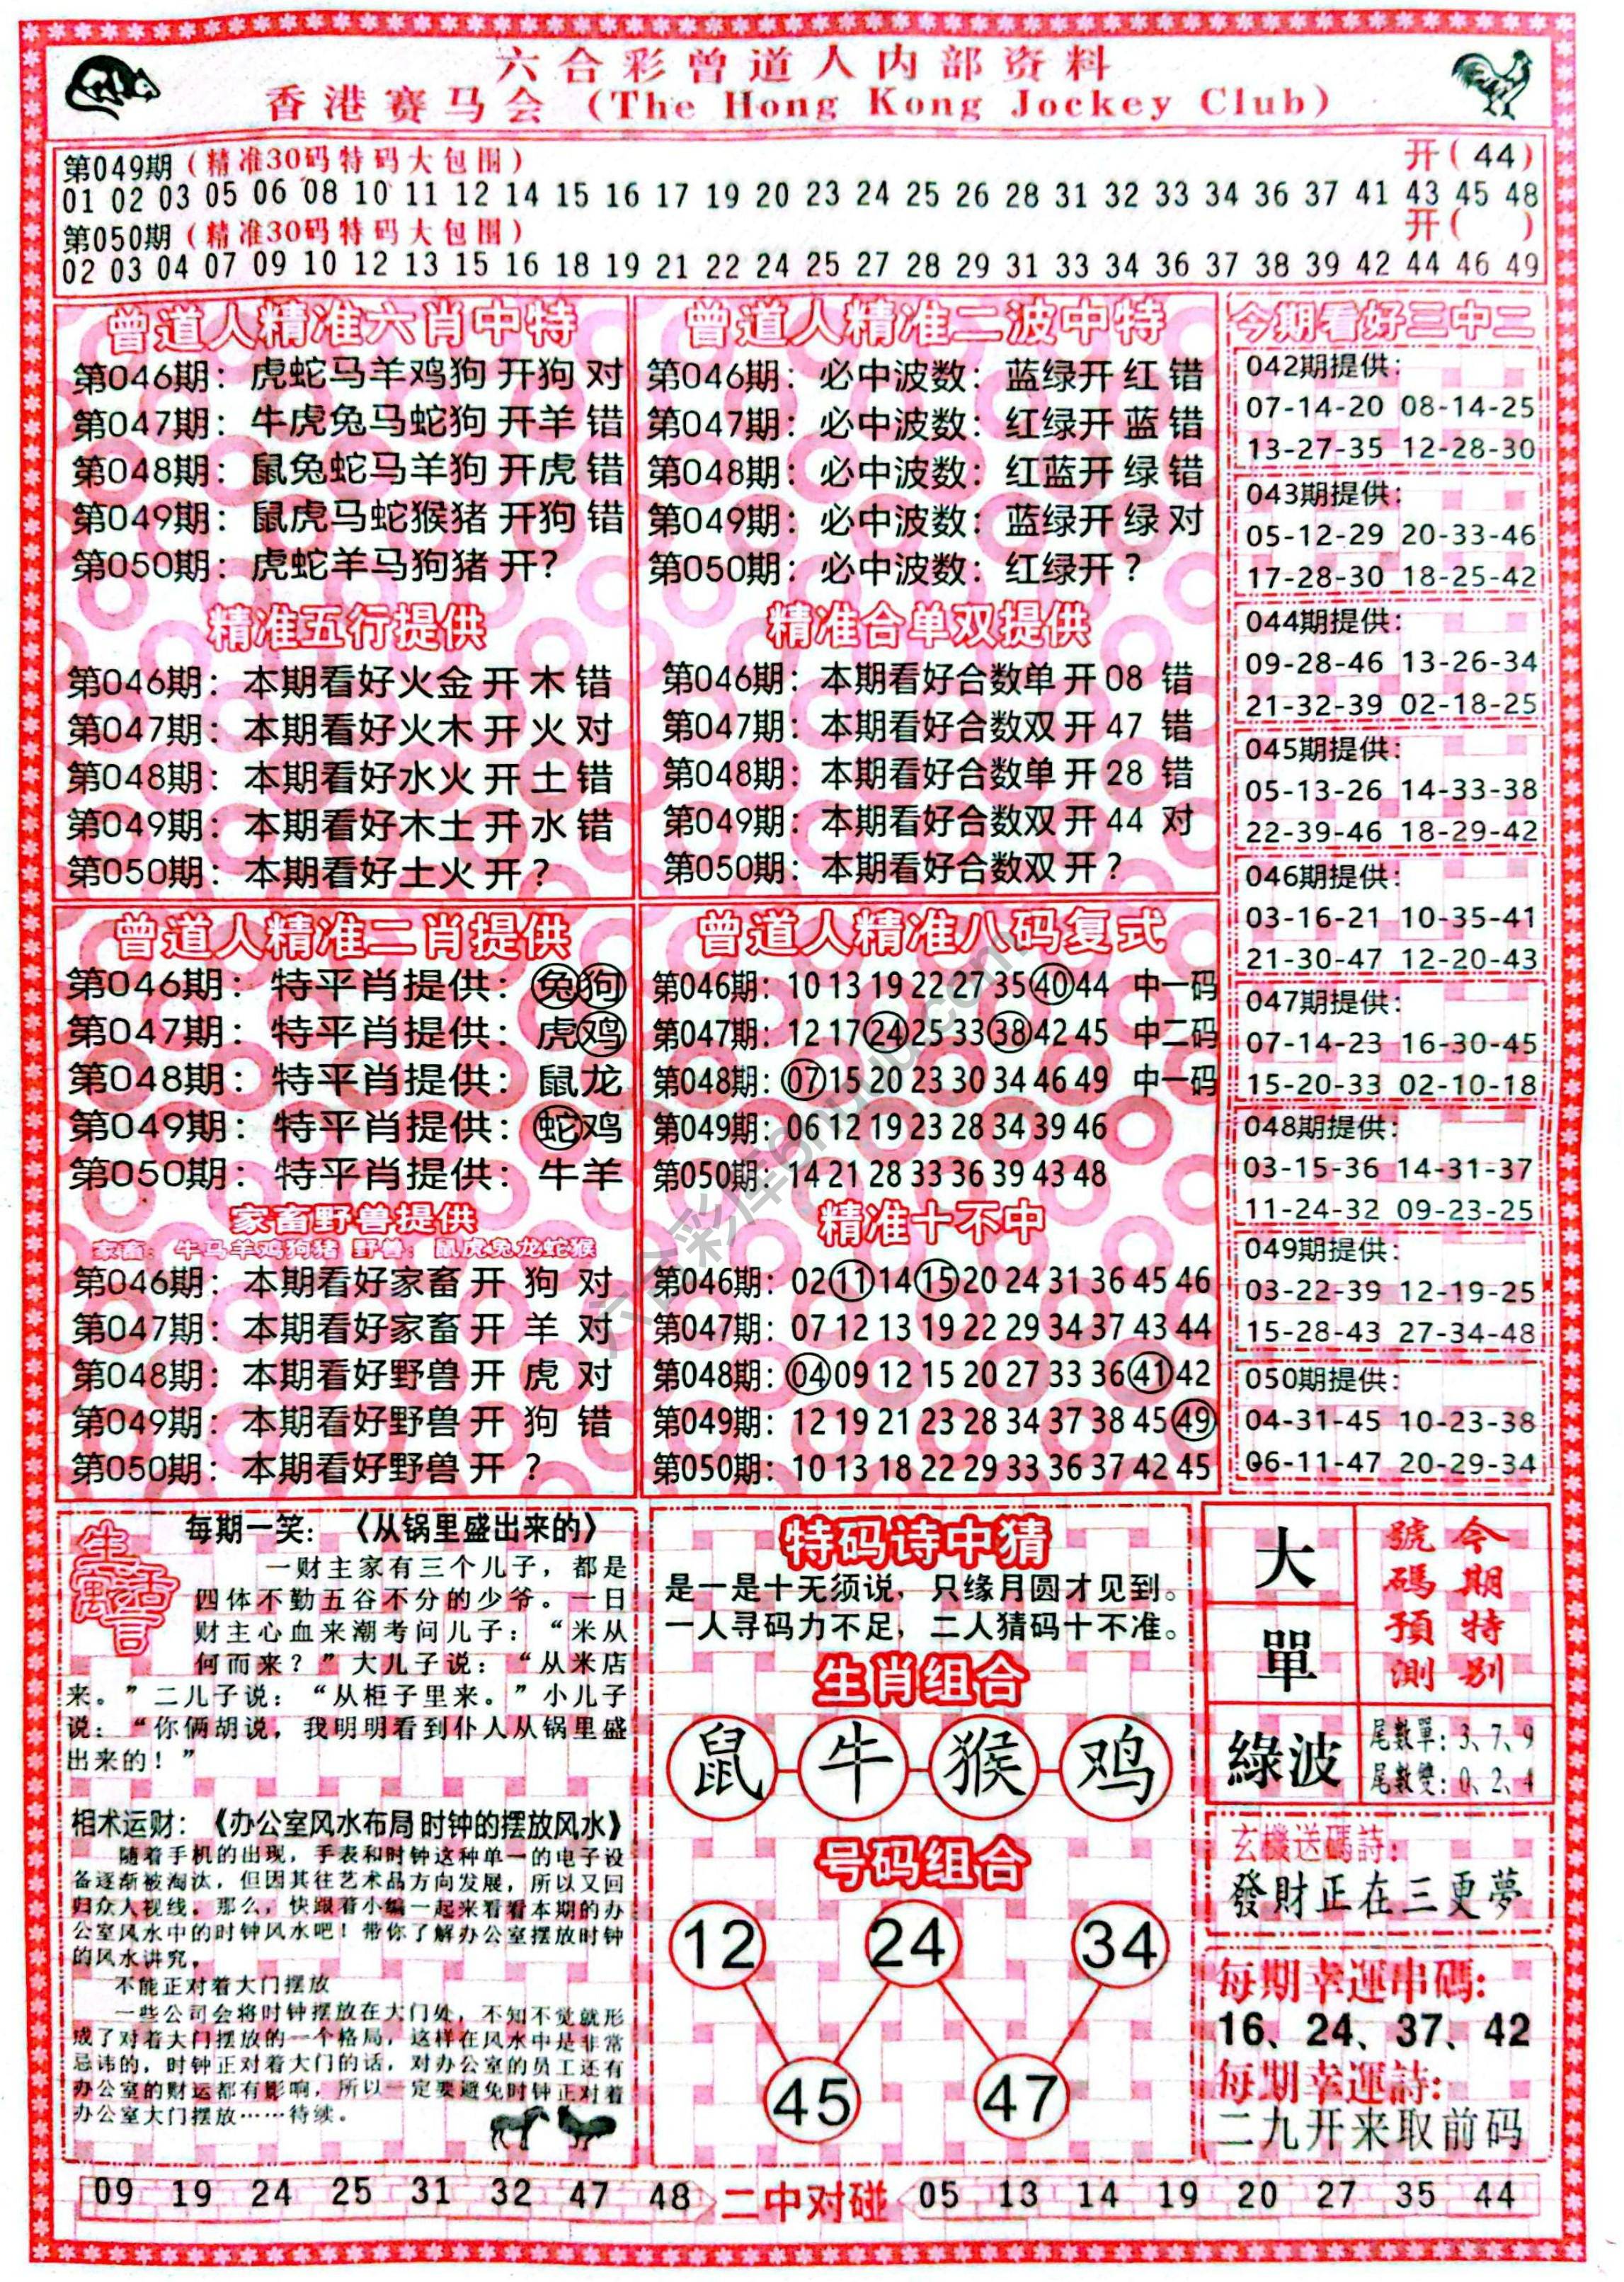 六合彩曾道人内部资料
香港赛马会 (The Hong Kong Jockey Club)
第049期(精准30码特码大包围) 开(44)
01 02 03 05 06 08 10 11 12 14 15 16 17 19 20 23 24 25 26 28 31 32 33 34 36 37 41 43 45 48
第050期(精准30码特码大包围) 开( )
02 03 04 07 09 10 12 13 15 16 18 19 21 22 24 25 27 28 29 31 33 34 36 37 38 39 42 44 46 49
曾道人精准六肖中特
第046期：虎蛇马羊鸡狗 开狗 对
第047期：牛虎兔马蛇狗 开羊 错
第048期：鼠兔蛇马羊狗 开虎 错
第049期：鼠虎马蛇猴猪 开狗 错
第050期：虎蛇羊马狗猪 开?
精准五行提供
第046期：本期看好火金 开 木 错
第047期：本期看好火木 开 火 对
第048期：本期看好水火 开 土 错
第049期：本期看好木土 开 水 错
第050期：本期看好土火 开 ?
曾道人精准二波中特
第046期：必中波数：蓝绿开 红 错
第047期：必中波数：红绿开 蓝 错
第048期：必中波数：红蓝开 绿 错
第049期：必中波数：蓝绿开 绿 对
第050期：必中波数：红绿开 ?
精准合单双提供
第046期：本期看好合数单 开 08 错
第047期：本期看好合数双 开 47 错
第048期：本期看好合数单 开 28 错
第049期：本期看好合数双 开 44 对
第050期：本期看好合数双 开 ?
今期看好三中二
042期提供：
07-14-20 08-14-25
13-27-35 12-28-30
043期提供：
05-12-29 20-33-46
17-28-30 18-25-42
044期提供：
09-28-46 13-26-34
21-32-39 02-18-25
045期提供：
05-13-26 14-33-38
22-39-46 18-29-42
046期提供：
03-16-21 10-35-41
21-30-47 12-20-43
047期提供：
07-14-23 16-30-45
15-20-33 02-10-18
048期提供：
03-15-36 14-31-37
11-24-32 09-23-25
049期提供：
03-22-39 12-19-25
15-28-43 27-34-48
050期提供：
04-31-45 10-23-38
06-11-47 20-29-34
曾道人精准二肖提供
第046期：特平肖提供：兔狗
第047期：特平肖提供：虎鸡
第048期：特平肖提供：鼠龙
第049期：特平肖提供：蛇鸡
第050期：特平肖提供：牛羊
家畜野兽提供
家畜：牛马羊鸡狗猪 野兽：鼠虎兔龙蛇猴
第046期：本期看好家畜 开 狗 对
第047期：本期看好家畜 开 羊 对
第048期：本期看好野兽 开 虎 对
第049期：本期看好野兽 开 狗 错
第050期：本期看好野兽 开 ?
曾道人精准八码复式
第046期：10 13 19 22 27 35 40 44 中一码
第047期：12 17 24 25 33 38 42 45 中二码
第048期：07 15 20 23 30 34 46 49 中一码
第049期：06 12 19 23 28 34 39 46
第050期：14 21 28 33 36 39 43 48
精准十不中
第046期：02 11 14 15 20 24 31 36 45 46
第047期：07 12 13 19 22 29 34 37 43 44
第048期：04 09 12 15 20 27 33 36 41 42
第049期：12 19 21 23 28 34 37 38 45 49
第050期：10 13 18 22 29 33 36 37 42 45
六合彩库6huu.com
生活寓言
每期一笑：《从锅里盛出来的》
一财主家有三个儿子，都是
四体不勤五谷不分的少爷。一日
财主心血来潮考问儿子：“米从
何而来？”大儿子说：“从米店
来。”二儿子说：“从柜子里来。”小儿子
说：“你俩胡说，我明明看到仆人从锅里盛
出来的！”
相术运财：《办公室风水布局 时钟的摆放风水》
随着手机的出现，手表和时钟这种单一的电子设
备逐渐被淘汰，但因其往艺术品方向发展，所以又回
归众人视线。那么，快跟着小编一起来看看本期的办
公室风水中的时钟风水吧！带你了解办公室摆放时钟
的风水讲究。
不能正对着大门摆放
一些公司会将时钟摆放在大门处，不知不觉就形
成了对着大门摆放的一个格局，这样在风水中是非常
忌讳的，时钟正对着大门的话，对办公室的员工还有
办公室的财运都有影响，所以一定要避免时钟正对着
办公室大门摆放……待续。
特码诗中猜
是一是十无须说，只缘月圆才见到。
一人寻码力不足，二人猜码十不准。
生肖组合
鼠 牛 猴 鸡
号码组合
12 24 34
45 47
大
單
綠波
今期特别
號碼預測
尾數單：3、7、9
尾數雙：0、2、4
玄機送碼詩：
發財正在三更夢
每期幸運串碼：
16、24、37、42
每期幸運詩：
二九开来取前码
09 19 24 25 31 32 47 48 二中对碰 05 13 14 19 20 27 35 44